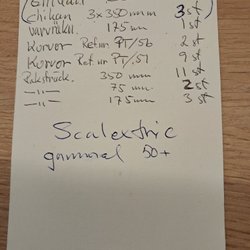 Chikan 3x350 mm 3 st
varvräkn. 175 mm 1 st
Kurvor Ref nr PT/56 2 st
Kurvor Ref nr PT/51 9 st
Raksträck. 350 mm 11 st
—11— 75 mm 2 st
—11— 175 mm 3 st
Scalextric
gammal 50+